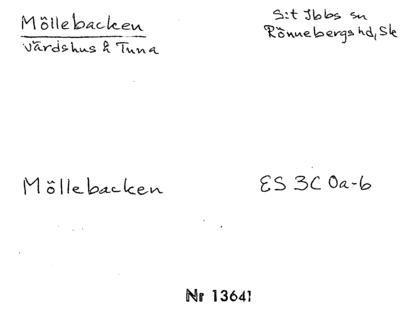 Möllebacken
värdshus å Tuna
S:t Ibbs sn
Rönnebergs hd, Sk
Möllebacken
ES 3C 0a-b
Nr 13641